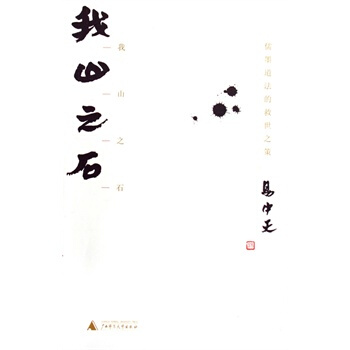 我山之石
我山之石
儒墨道法的救世之策
易中天
广西师范大学出版社